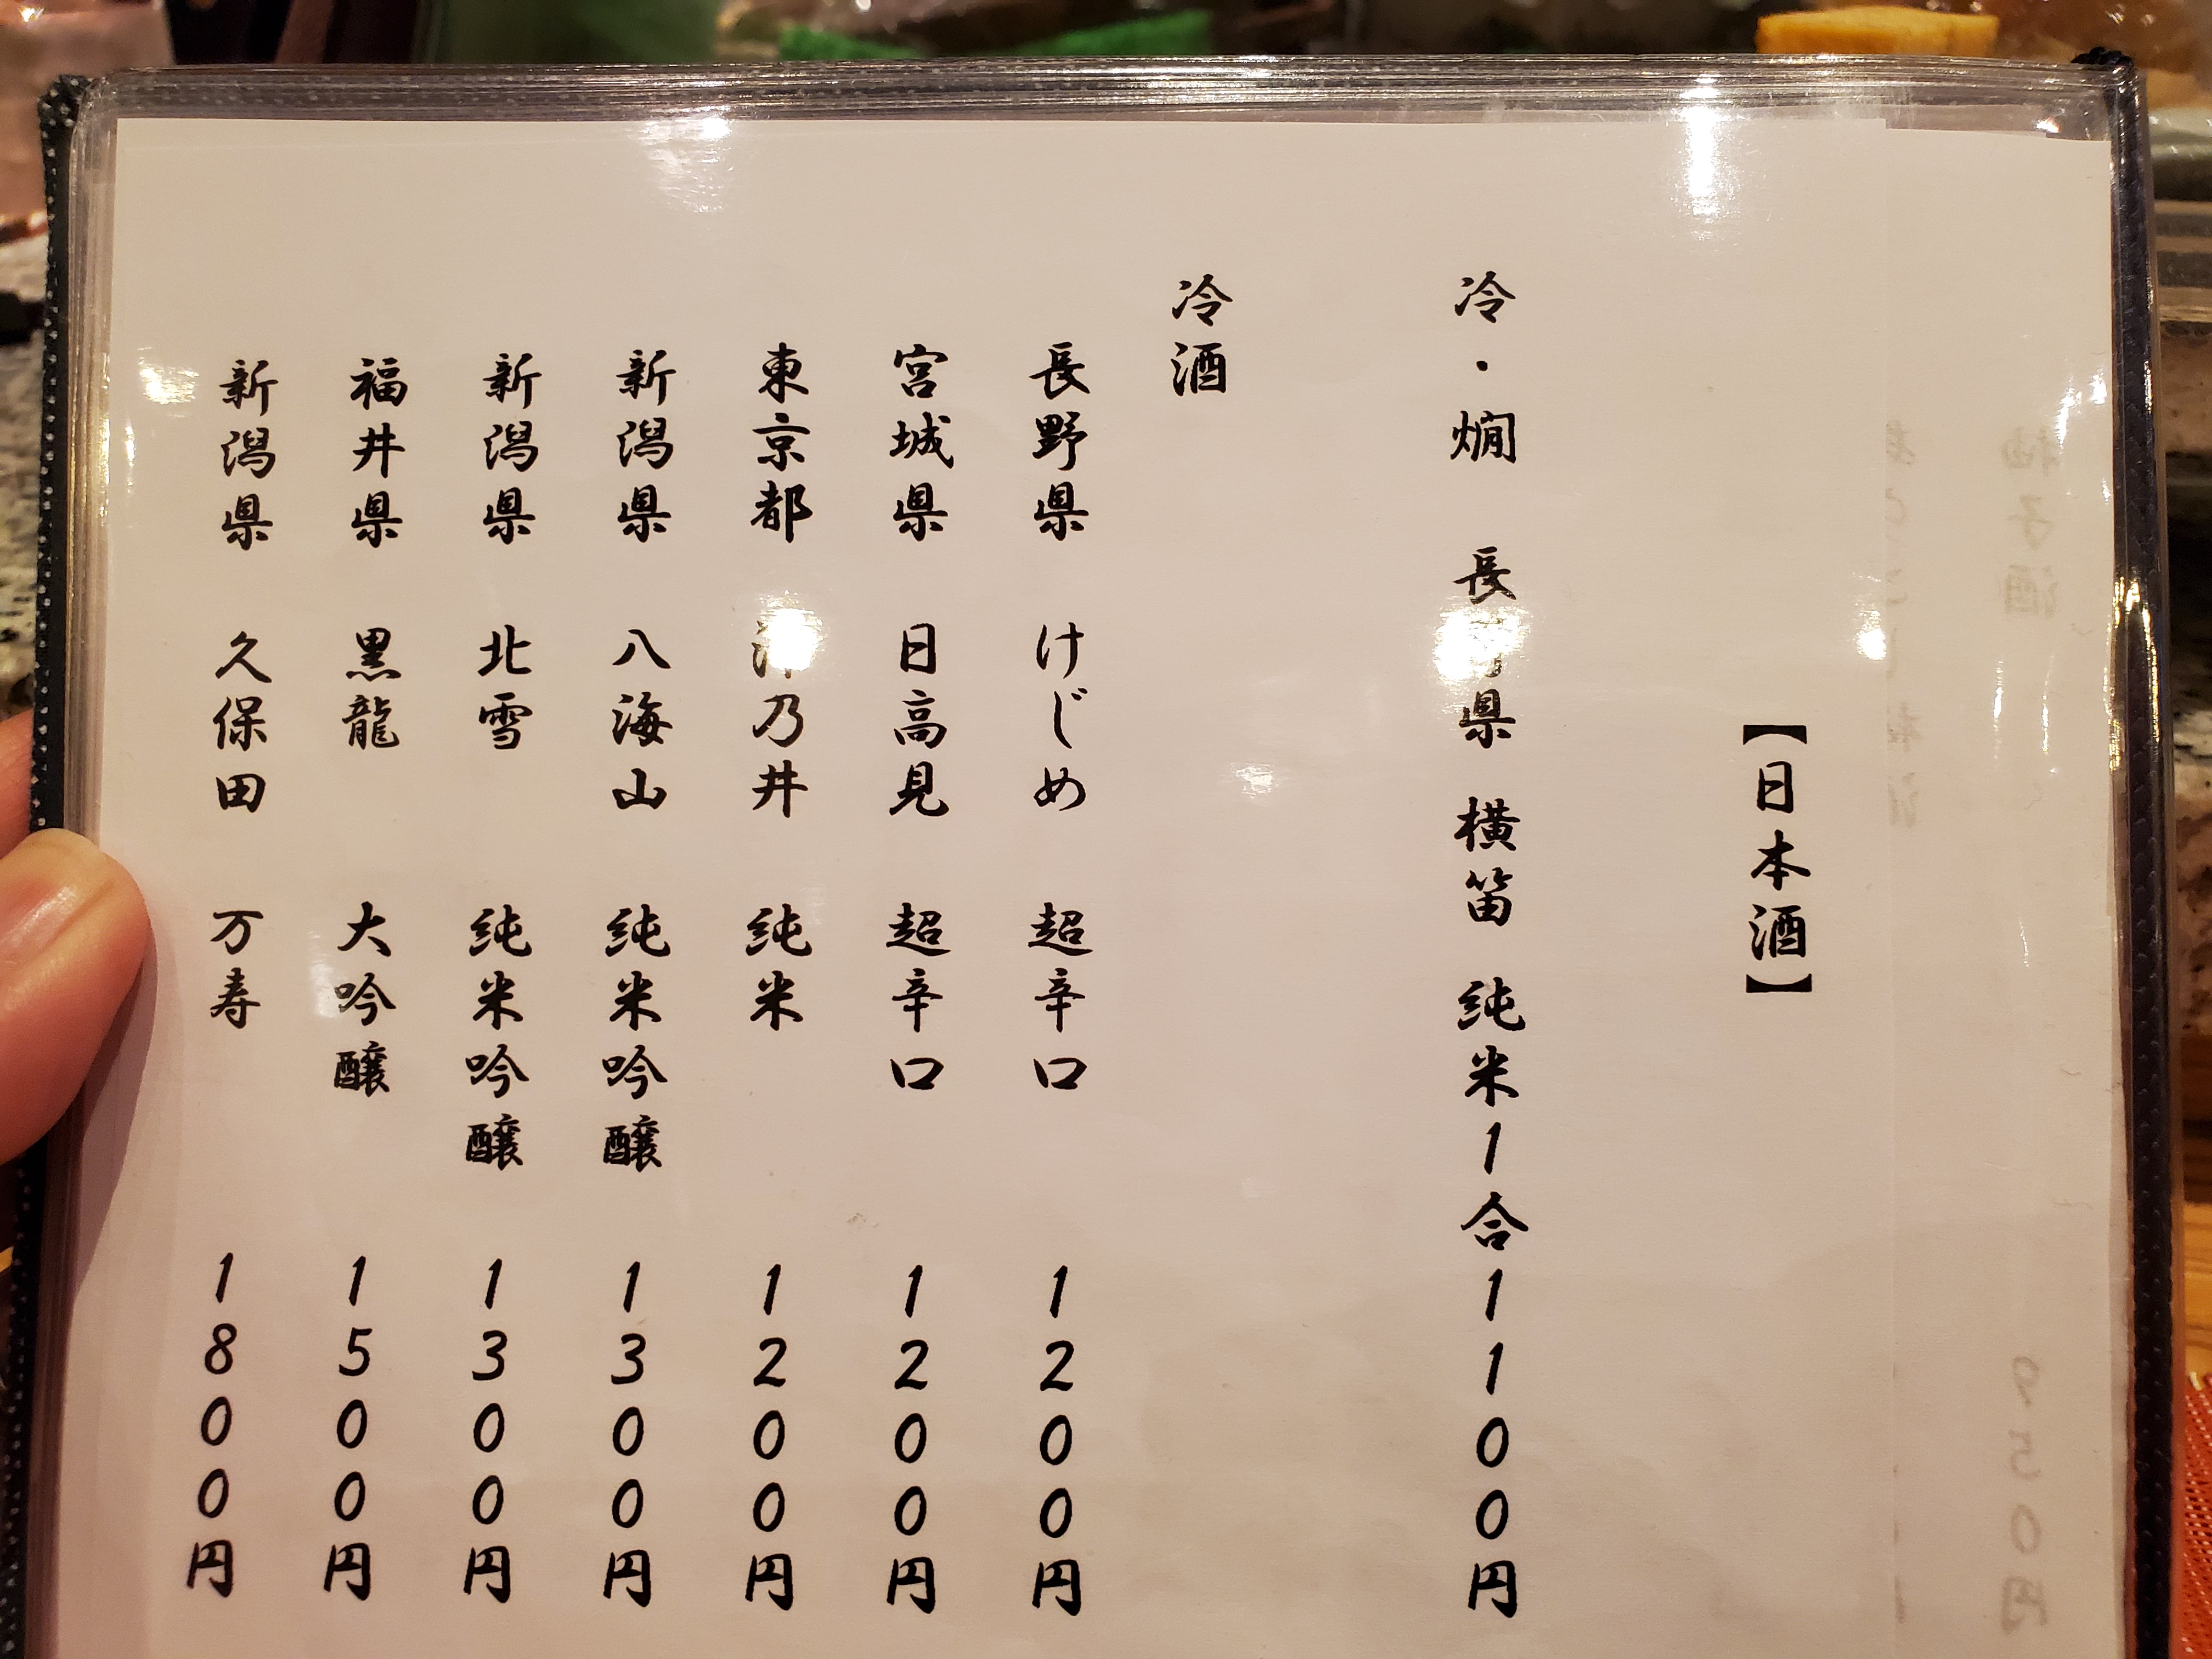 【日本酒】
冷・燗 長県 横笛 純米1合1100円
冷酒
長野県 けじめ 超辛口 1200円
宮城県 日高見 超辛口 1200円
東京都 乃井 純米 1200円
新潟県 八海山 純米吟醸 1300円
新潟県 北雪 純米吟醸 1300円
福井県 黒龍 大吟醸 1500円
新潟県 久保田 万寿 1800円